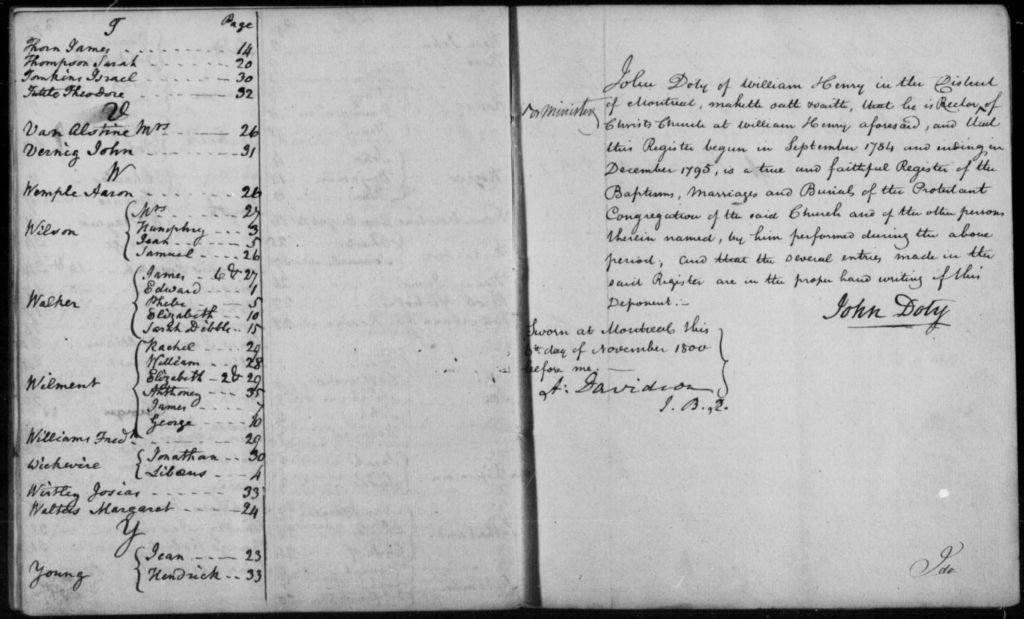 T Page
Thorn James - - - - - 14
Thompson Sarah - - - - 20
Tomkins Israel - - - - 30
Tuttle Theodore - - - - 32
V
Van Alstine Mrs - - - 26
Vernig John - - - - - 31
W
Wemple Aaron - - - - - 26
Wilson
Mrs - - - - 27
Humphry - - 3
Isah - - - - 5
Samuel - - - 26
Walker
James - - 6 & 27
Edward - - - 1
Phebe - - - 5
Elizabeth - - 10
Sarah Dibble - - 15
Wilment
Rachel - - - 29
William - - - 28
Elizabeth - 2 & 29
Anthoney - - - 35
James - - - 7
George - - - 10
Williams Fredk - - - - 29
Wickwire
Jonathan - - - 30
Libæus - - - 4
Wistley Josias - - - - 33
Walters Margaret - - - - 24
Y
Young
Jean - - - 23
Hendrick - - 33
John Doty of William Henry in the District
of Montreal, maketh oath & saith, that he is Rector of
or Minister
Christs Church at William Henry aforesaid, and that
this Register begun in September 1784 and ending in
December 1795, is a true and faithful Register of the
Baptisms, Marriages and Burials of the Protestant
Congregation of the said Church and of the other persons
therein named, by him performed during the above
period, and that the several entries made in the
said Register are in the proper hand writing of this
Deponent.-
John Doty
Sworn at Montreal this
6th day of November 1800
before me.
A: Davidson
J. B. R.